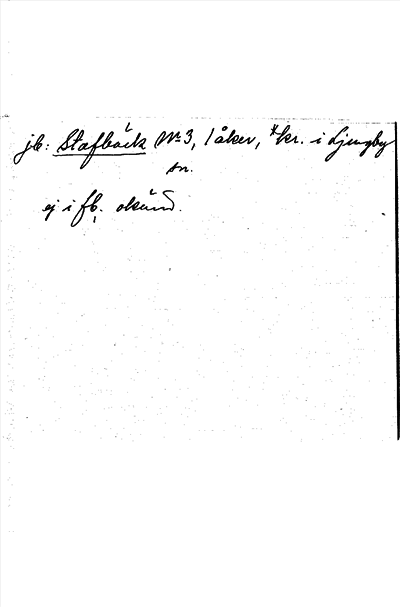 jb: Stafbäck No 3, 1 åker, *kr. i Ljungby
sn.
ej i fb. okänd.